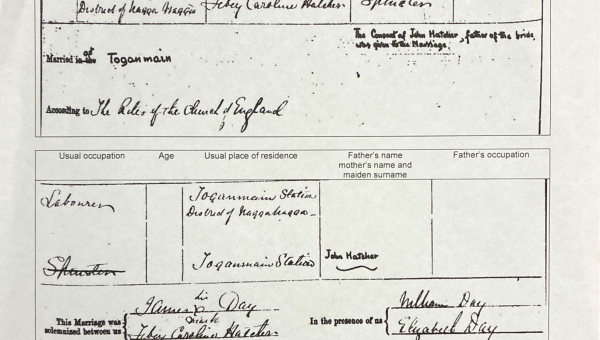 District of Wagga Wagga
Tibey Caroline Hatcher
Spinster
The Consent of John Hatcher, father of the bride,
was given to the Marriage.
Married in the at Toganmain
According to The Rites of the Church of England
Usual occupation Age Usual place of residence Father's name
mother's name and
maiden surname Father's occupation
Labourer Toganmain Station
District of Wagga Wagga
Spinster Toganmain Station John Hatcher
James his Day
mark
This Marriage was
solemnized between us Tibey Caroline Hatcher
In the presence of us William Day
Elizabeth Day